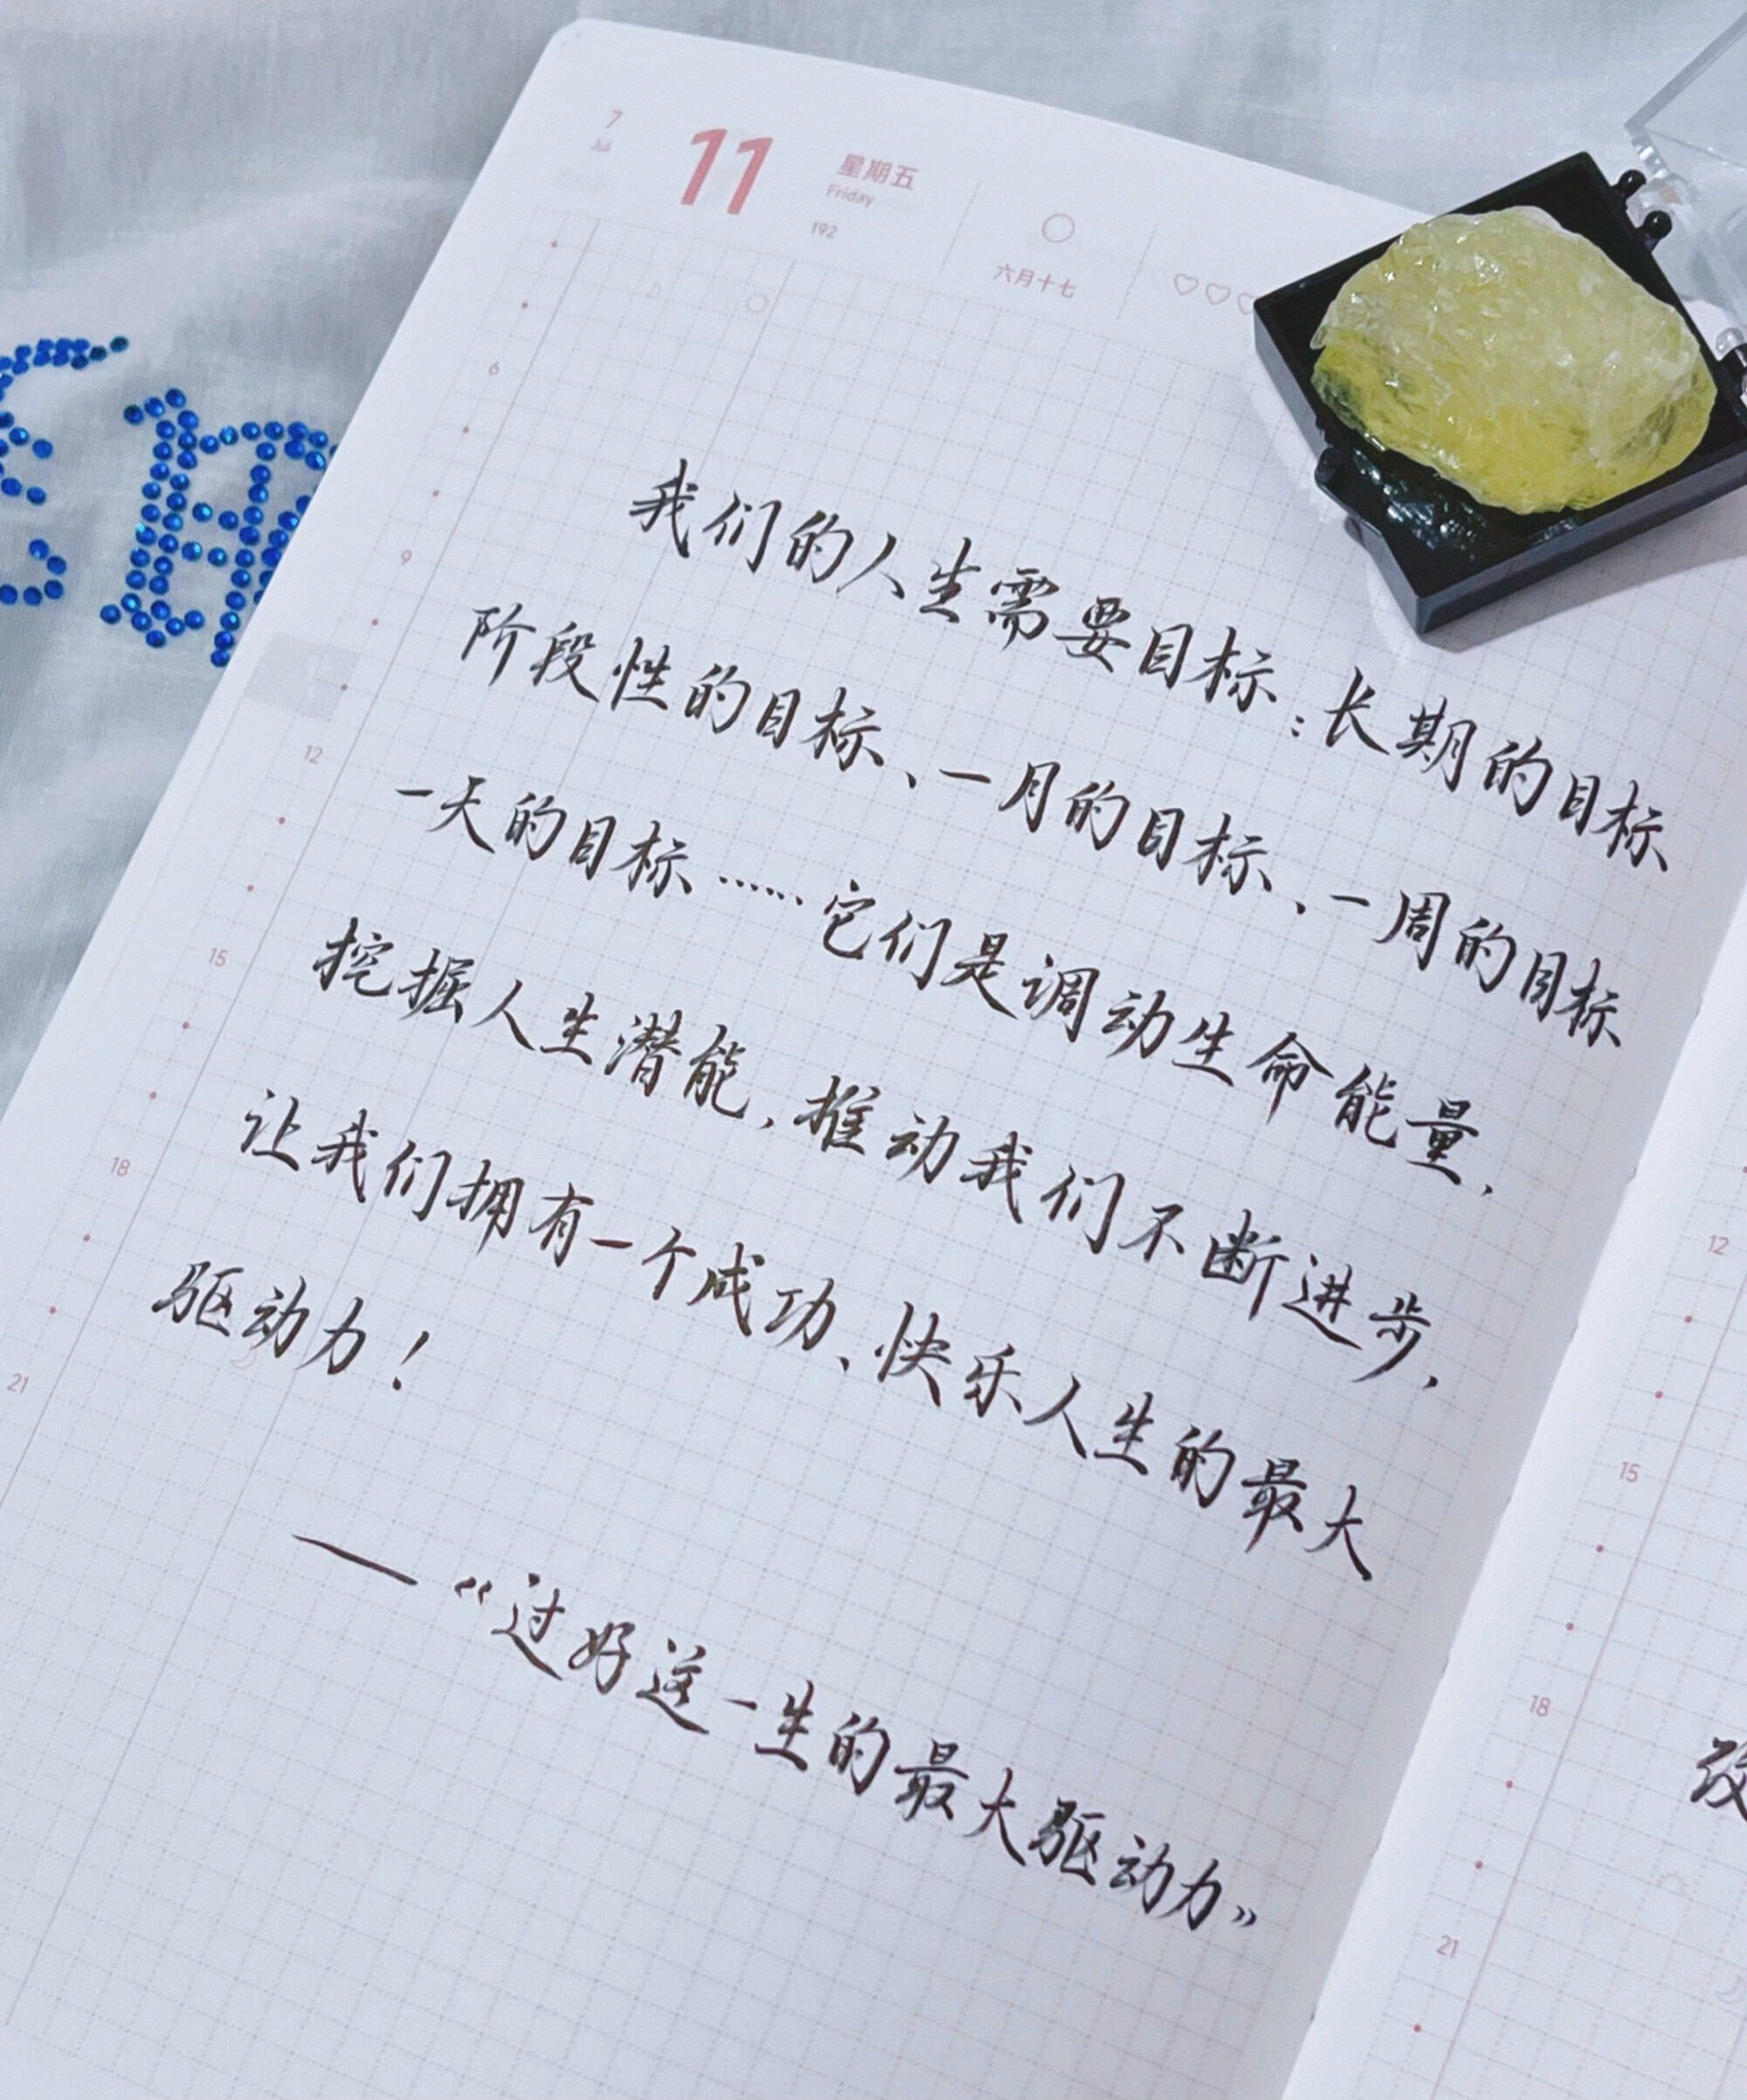 7
Jul
11
星期五
Friday
192
六月十七
6
9
12
15
18
21
我们的人生需要目标：长期的目标
阶段性的目标、一月的目标、一周的目标
一天的目标……它们是调动生命能量，
挖掘人生潜能，推动我们不断进步，
让我们拥有一个成功、快乐人生的最大
驱动力！
——《过好这一生的最大驱动力》
12
15
18
21